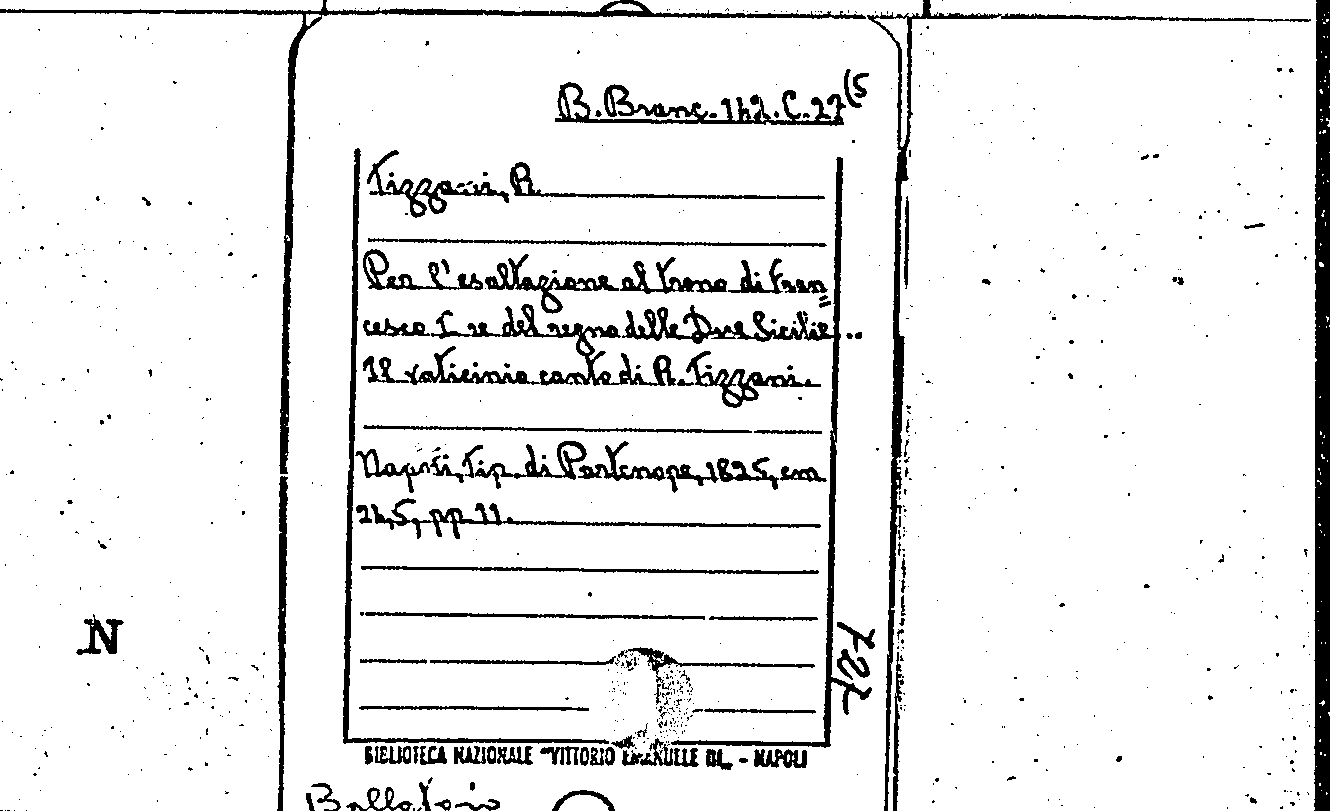 B. Branc. 142. C. 27(5
Tizzani, R.
Per l'esaltazione al trono di Fran=
cesco I re del regno delle Due Sicilie...
Il vaticinio canto di R. Tizzani.
Napoli, Tip. di Partenope, 1825, cm
24,5, pp 11.
N
BIBLIOTECA NAZIONALE "VITTORIO EMANUELE III„ - NAPOLI